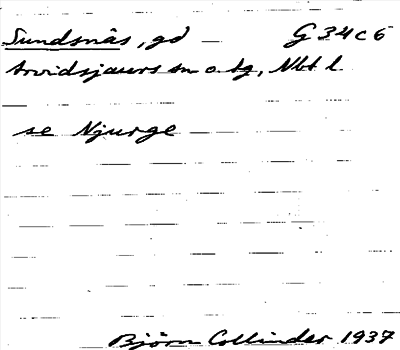 Sundsnäs, gd G 34 c 6
Arvidsjaurs sn o. tg, Nbt l
se Njurge
Björn Collinder 1937